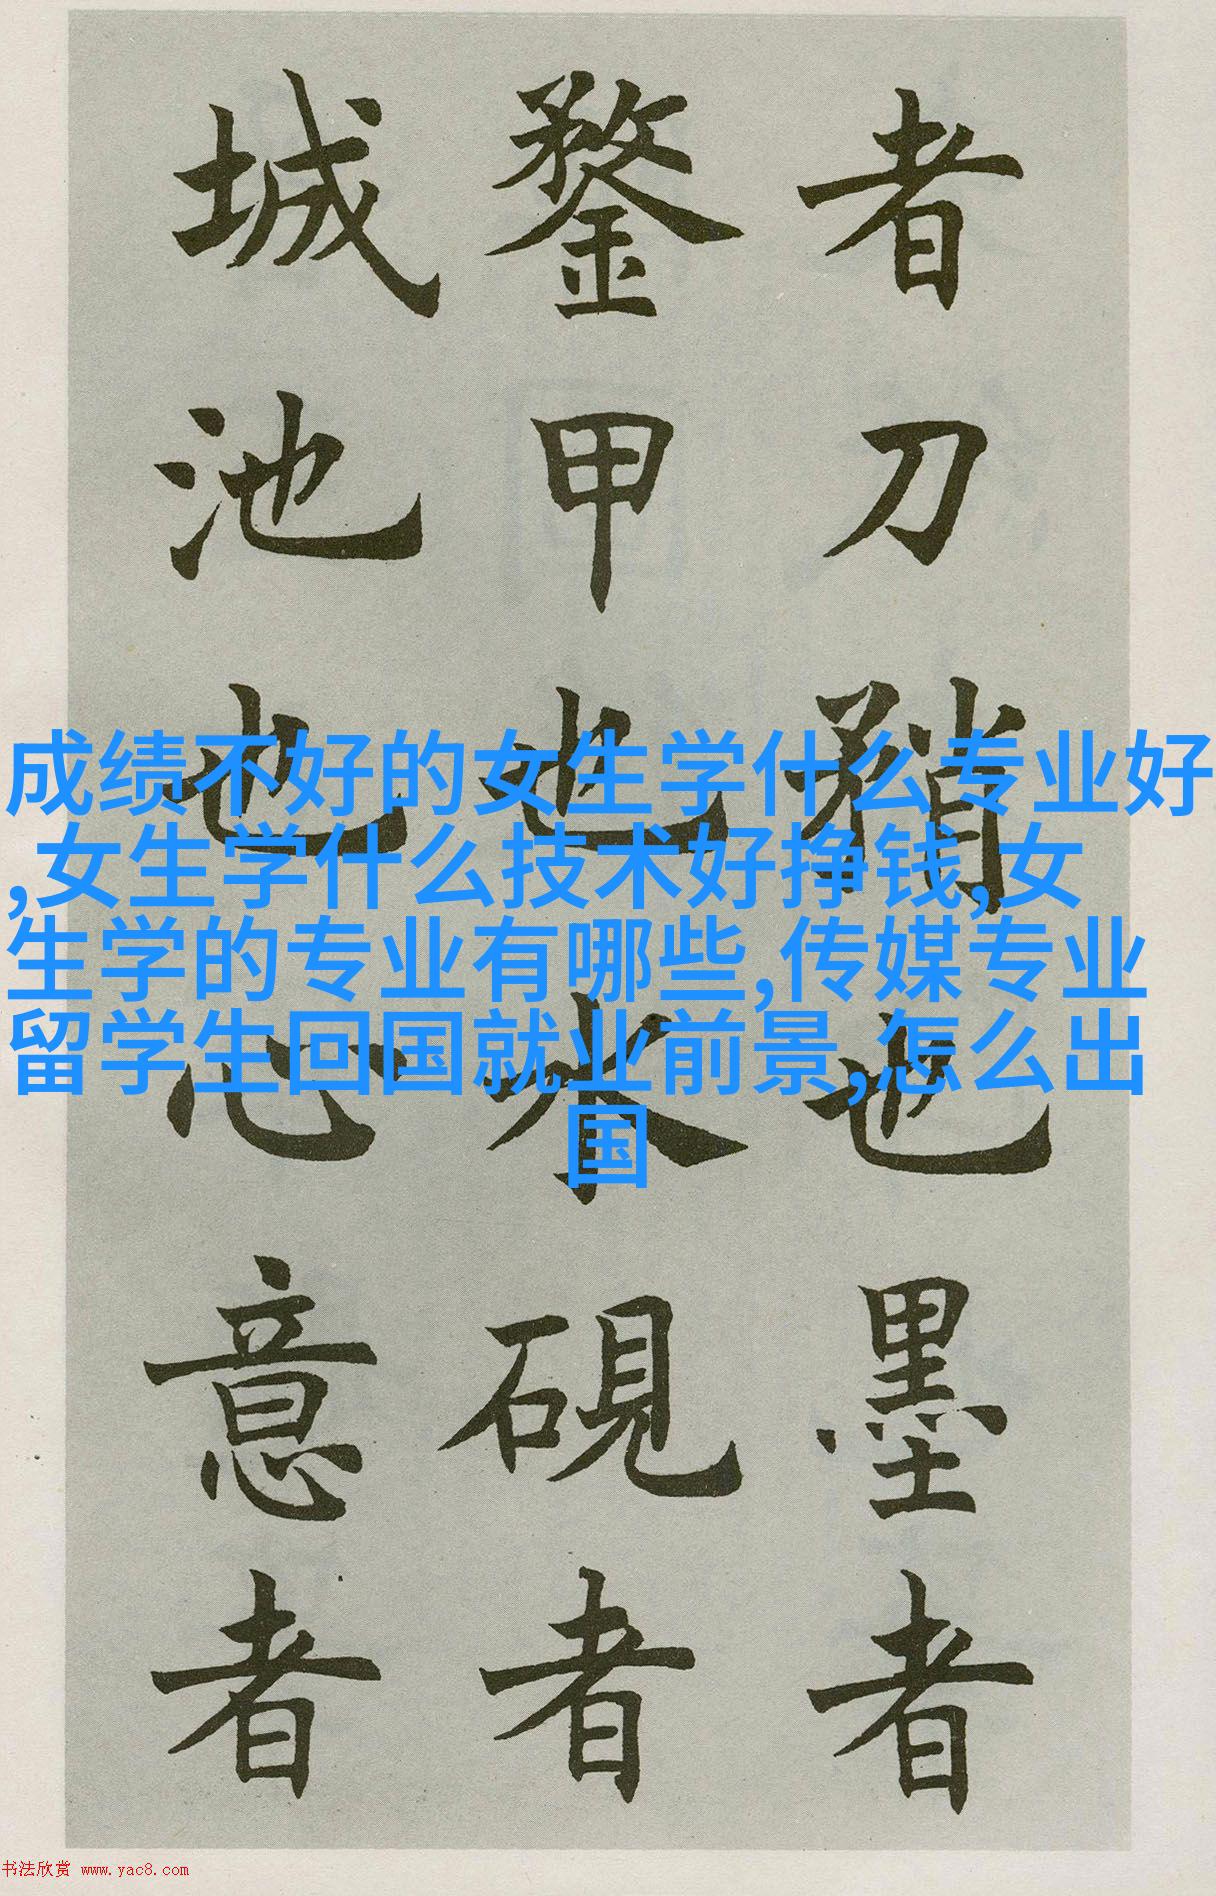 者刀矟也墨者
鍪甲也水硯者
城池也心意者
成绩不好的女生学什么专业好
,女生学什么技术好挣钱,女
生学的专业有哪些,传媒专业
留学生回国就业前景,怎么出
国
书法欣赏 www.yac8.com